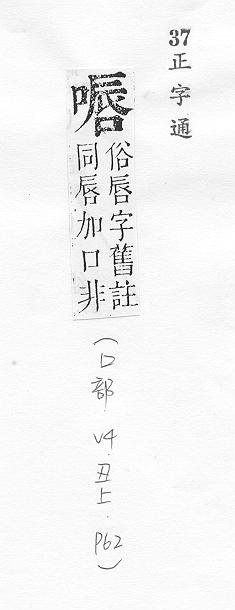 37正字通
㖘
俗唇字舊註
同唇加口非
(口部 V4.丑上.P62)